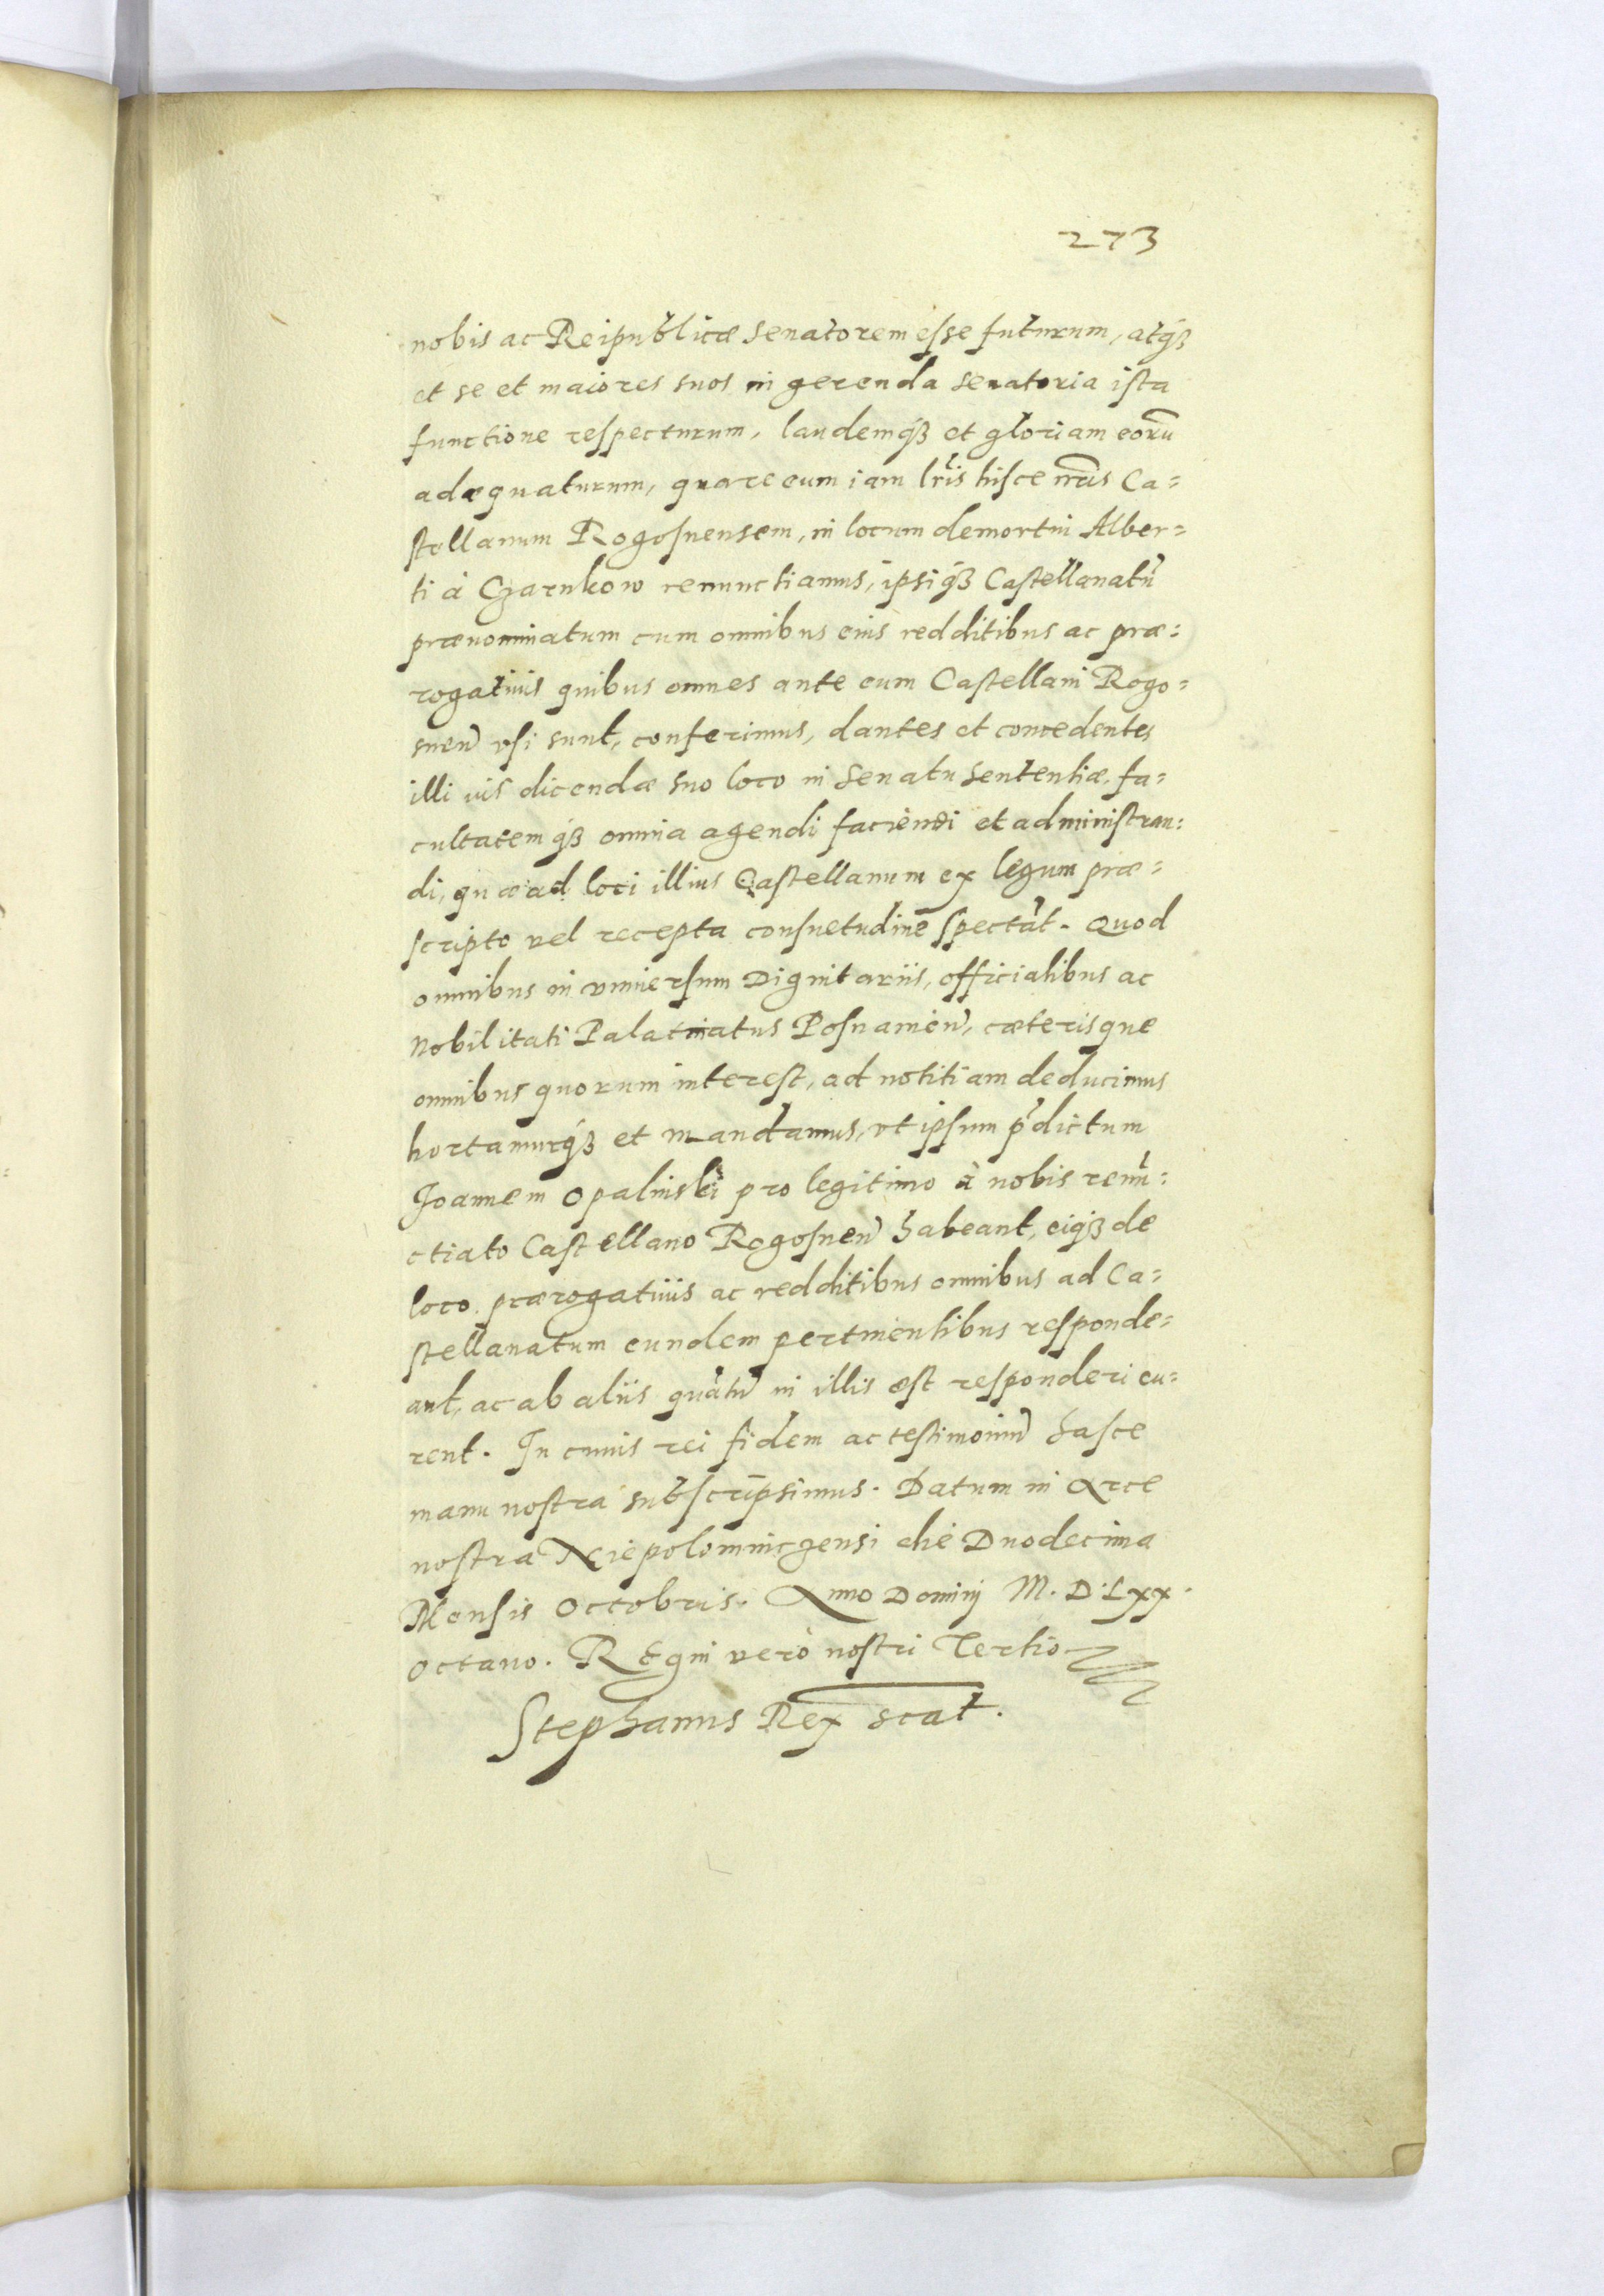 273
nobis ac Reipublicæ Senatorem esse futurum, atq́ꝫ
et se et maiores suos in gerenda senatoria ista
functione respecturum, laudemq́ꝫ et gloriam eorū
adæquaturum, quare eum iam lr̃is hisce nr̃is Ca=
stellanum Rogosnensem, in locum demortui Alber=
ti à Czarnkow renunctiamus, ipsiq́ꝫ Castellanatū
prænominatum cum omnibus eius redditibus ac præ=
rogatiuis quibus omnes ante eum Castellani Rogo=
snen̄ vsi sunt, conferimus, dantes et concedentes
illi ius dicendæ suo loco in Senatu sententiæ, fa=
cultatemq́ꝫ omnia agendi faciendi et administran:
di, quæ ad loci illius Castellanum ex legum præ=
scripto vel recepta consuetudine spectāt. Quod
omnibus in vniuersum Dignitariis, officialibus ac
Nobilitati Palatinatus Posnamen̄, cæterisque
omnibus quorum interest, ad notitiam deducimus
hortamurq́ꝫ et mandamus, vt ipsum p̄dictum
Joannem Opalinski pro legitimo à nobis renū:
ctiato Castellano Rogosnen̄ habeant, eiq́ꝫ de
loco, prærogatiuis ac redditibus omnibus ad Ca=
stellanatum eundem pertinentibus responde=
ant, ac ab aliis quātū in illis est responderi cu=
rent. In cuius rei fidem ac testimoniū hasce
manu nostra subscripsimus. Datum in Arce
nostra Niepolomniczensi die Duodecima
Mensis Octobris. Anno Domini M. D. Lxx.
Octauo. REgni verò nostri Tertio
Stephanus Rex scat.